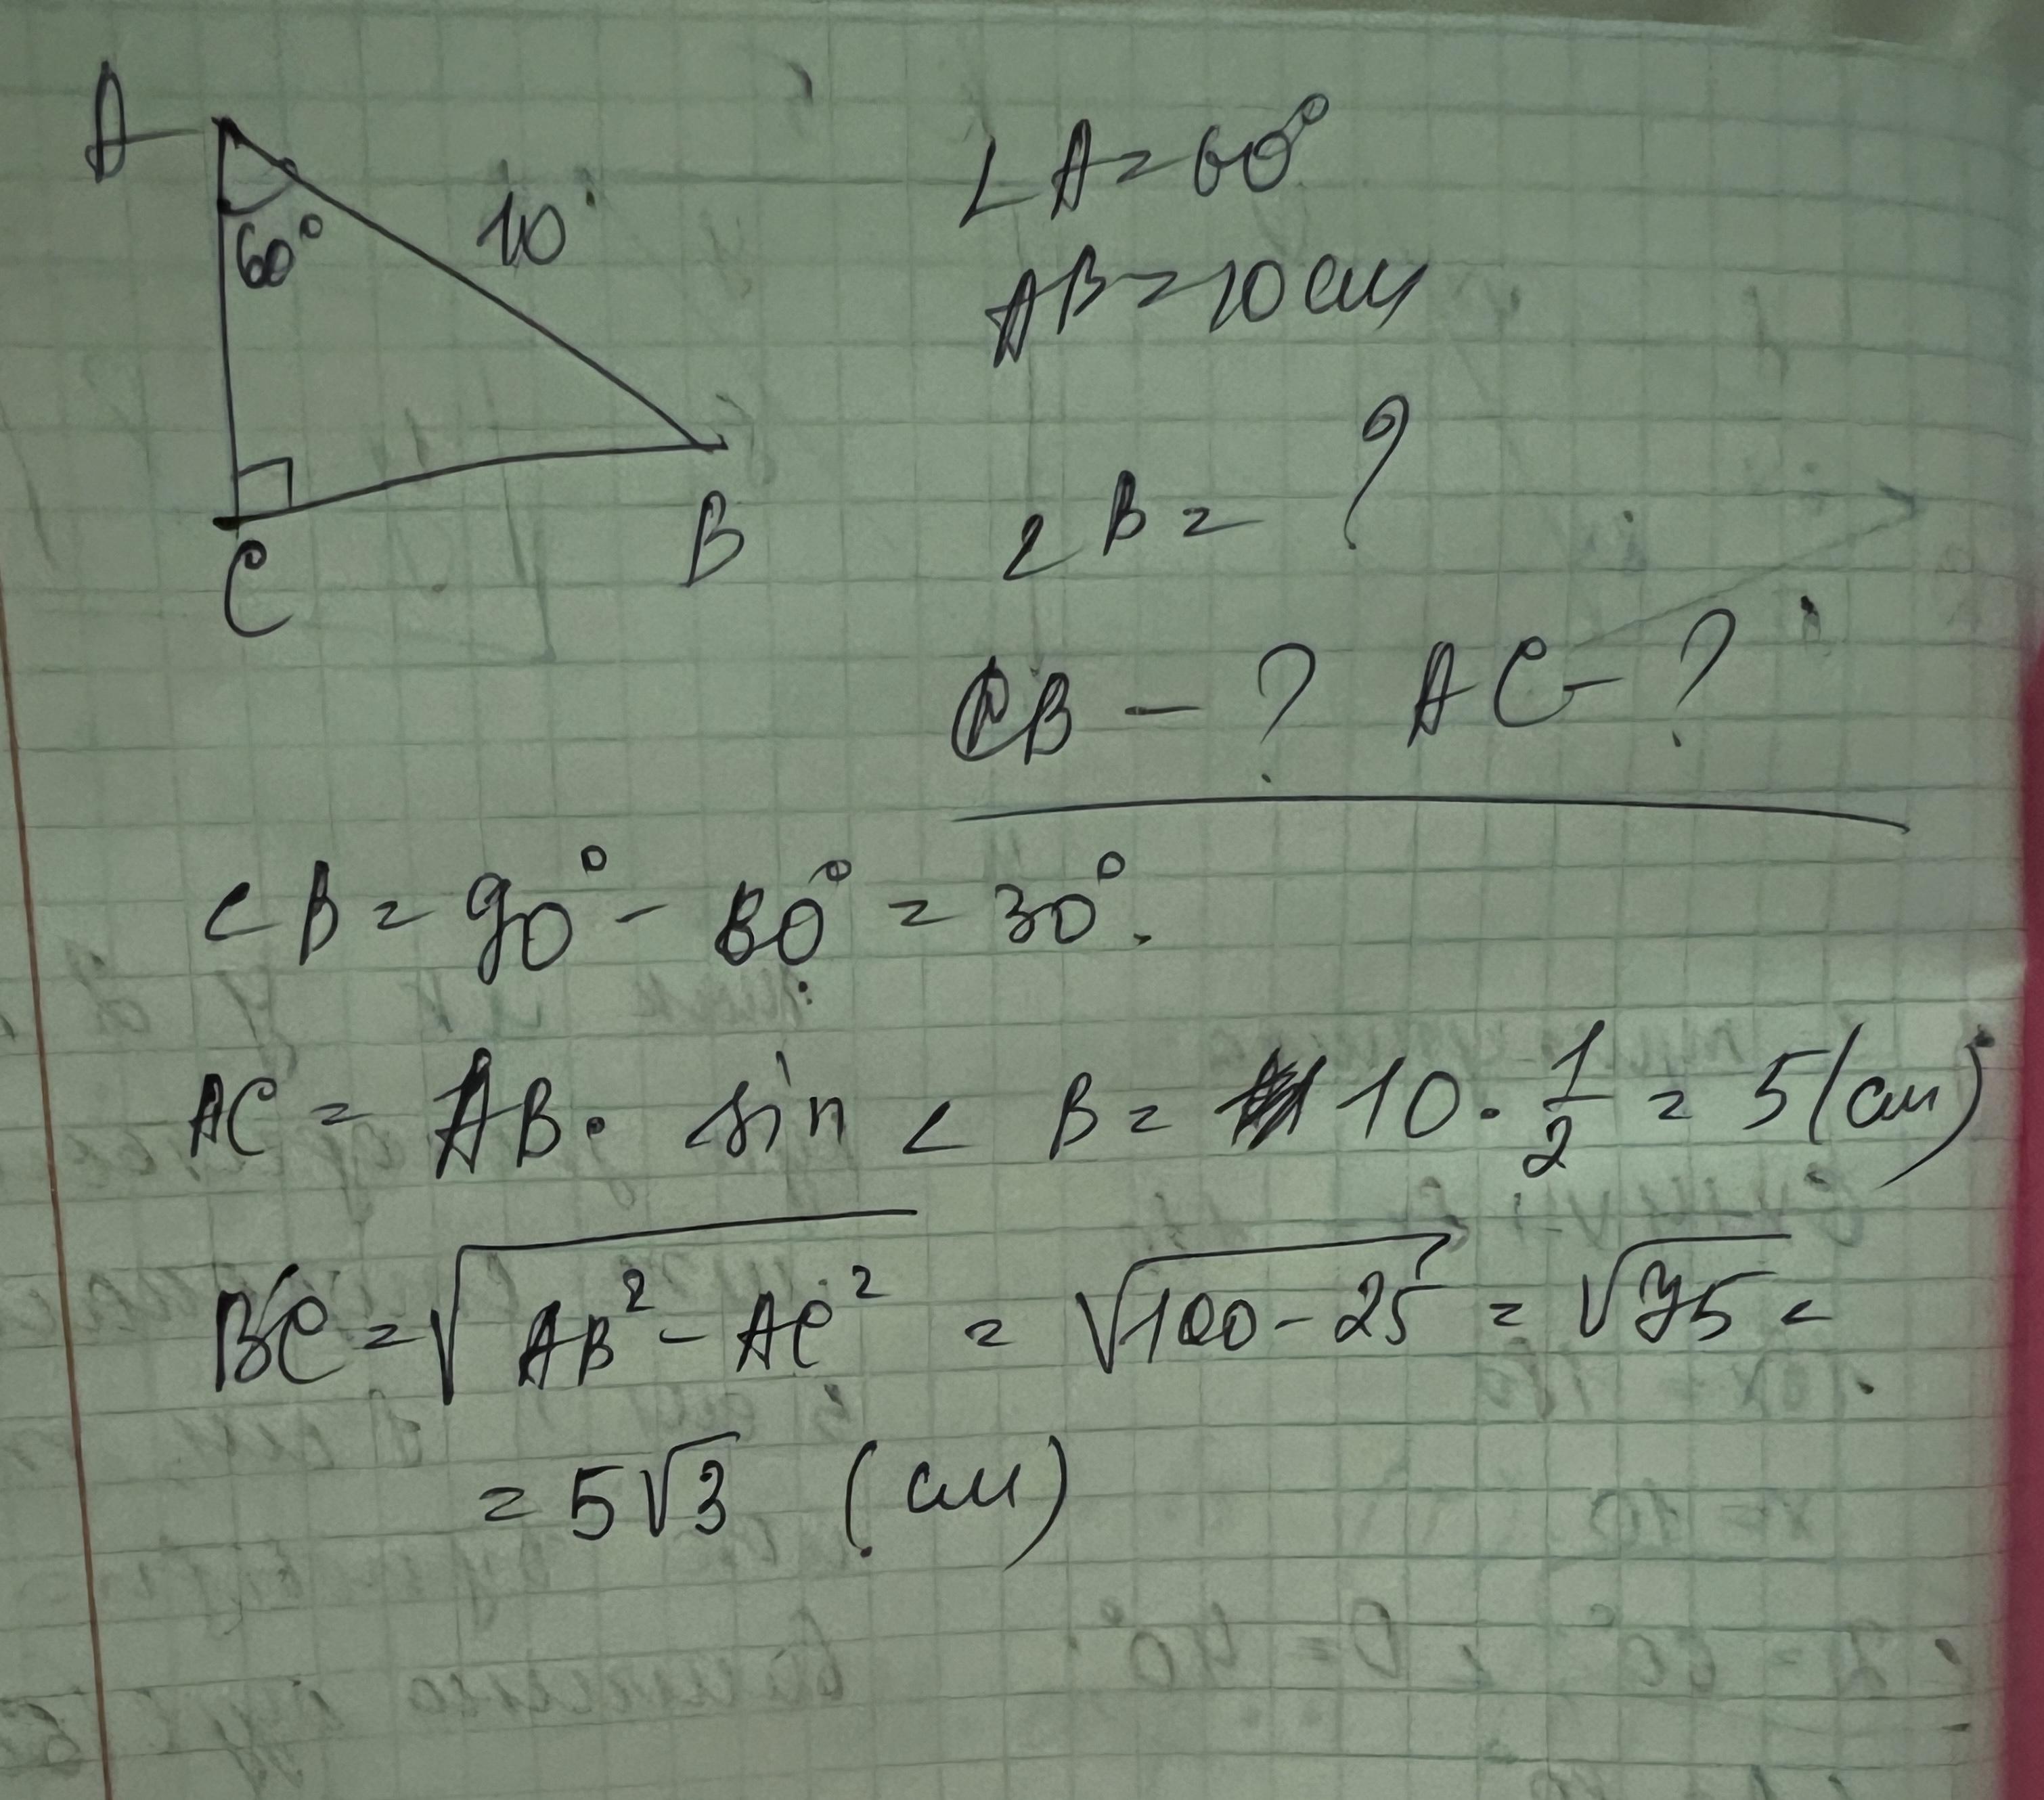 A
60°
10
C
B
∠A=60°
AB=10 см
∠B=?
CB-? AC-?
∠B=90°-60°=30°.
AC=AB·sin∠B=10·1/2=5(см)
BC=√AB²-AC²=√100-25=√75=
=5√3 (см)